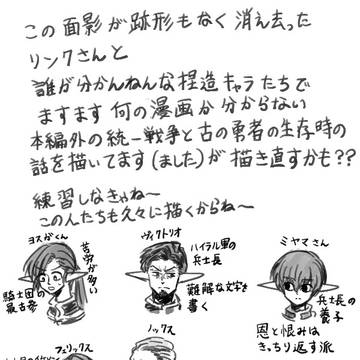 この面影が跡形もなく消え去った
リンクさんと
誰が分かんねんな捏造キャラたちで
ますます何の漫画か分からない
本編外の統一戦争と古の勇者の生存時の
話を描いてます(ました)が描き直すかも??
練習しなきゃね〜
この人たちも久々に描くからね〜
ヨスガくん
苦労が多い
騎士団の
最古参
ヴィクトリオ
ハイラル軍の
兵士長
難解な文字を
書く
ミヤマさん
兵士長の
養子
恩と恨みは
きっちり返す派
フェリックス
ノックス